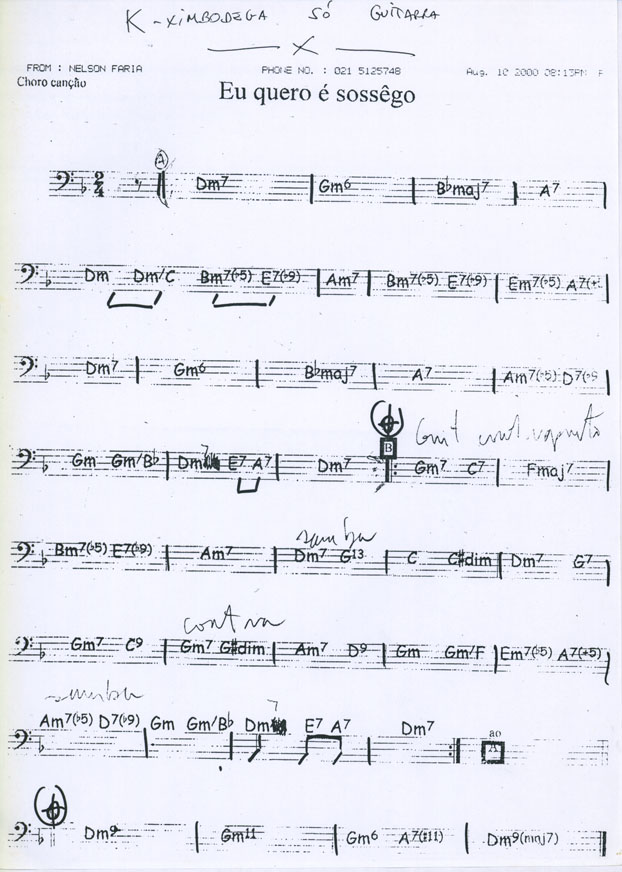 K-XIMBODEGA SÓ GUITARRA
X
FROM : NELSON FARIA PHONE NO. : 021 5125748 Aug. 10 2000 08:13PM P
Choro canção
Eu quero é sossêgo
A
2/4 Dm7 Gm6 B♭maj7 A7
Dm Dm/C Bm7(♭5) E7(♭9) Am7 Bm7(♭5) E7(♭9) Em7(♭5) A7(
Dm7 Gm6 B♭maj7 A7 Am7(♭5) D7(♭9
B
Gm Gm/B♭ Dm7 E7 A7 Dm7 Gm7 C7 Fmaj7
samba
Bm7(♭5) E7(♭9) Am7 Dm7 G13 C C#dim Dm7 G7
contra
Gm7 C9 Gm7 G#dim Am7 D9 Gm Gm/F Em7(♭5) A7(+5)
samba
Am7(♭5) D7(♭9) Gm Gm/B♭ Dm7 E7 A7 Dm7 ao
A
Dm9 Gm11 Gm6 A7(#11) Dm9(maj7)